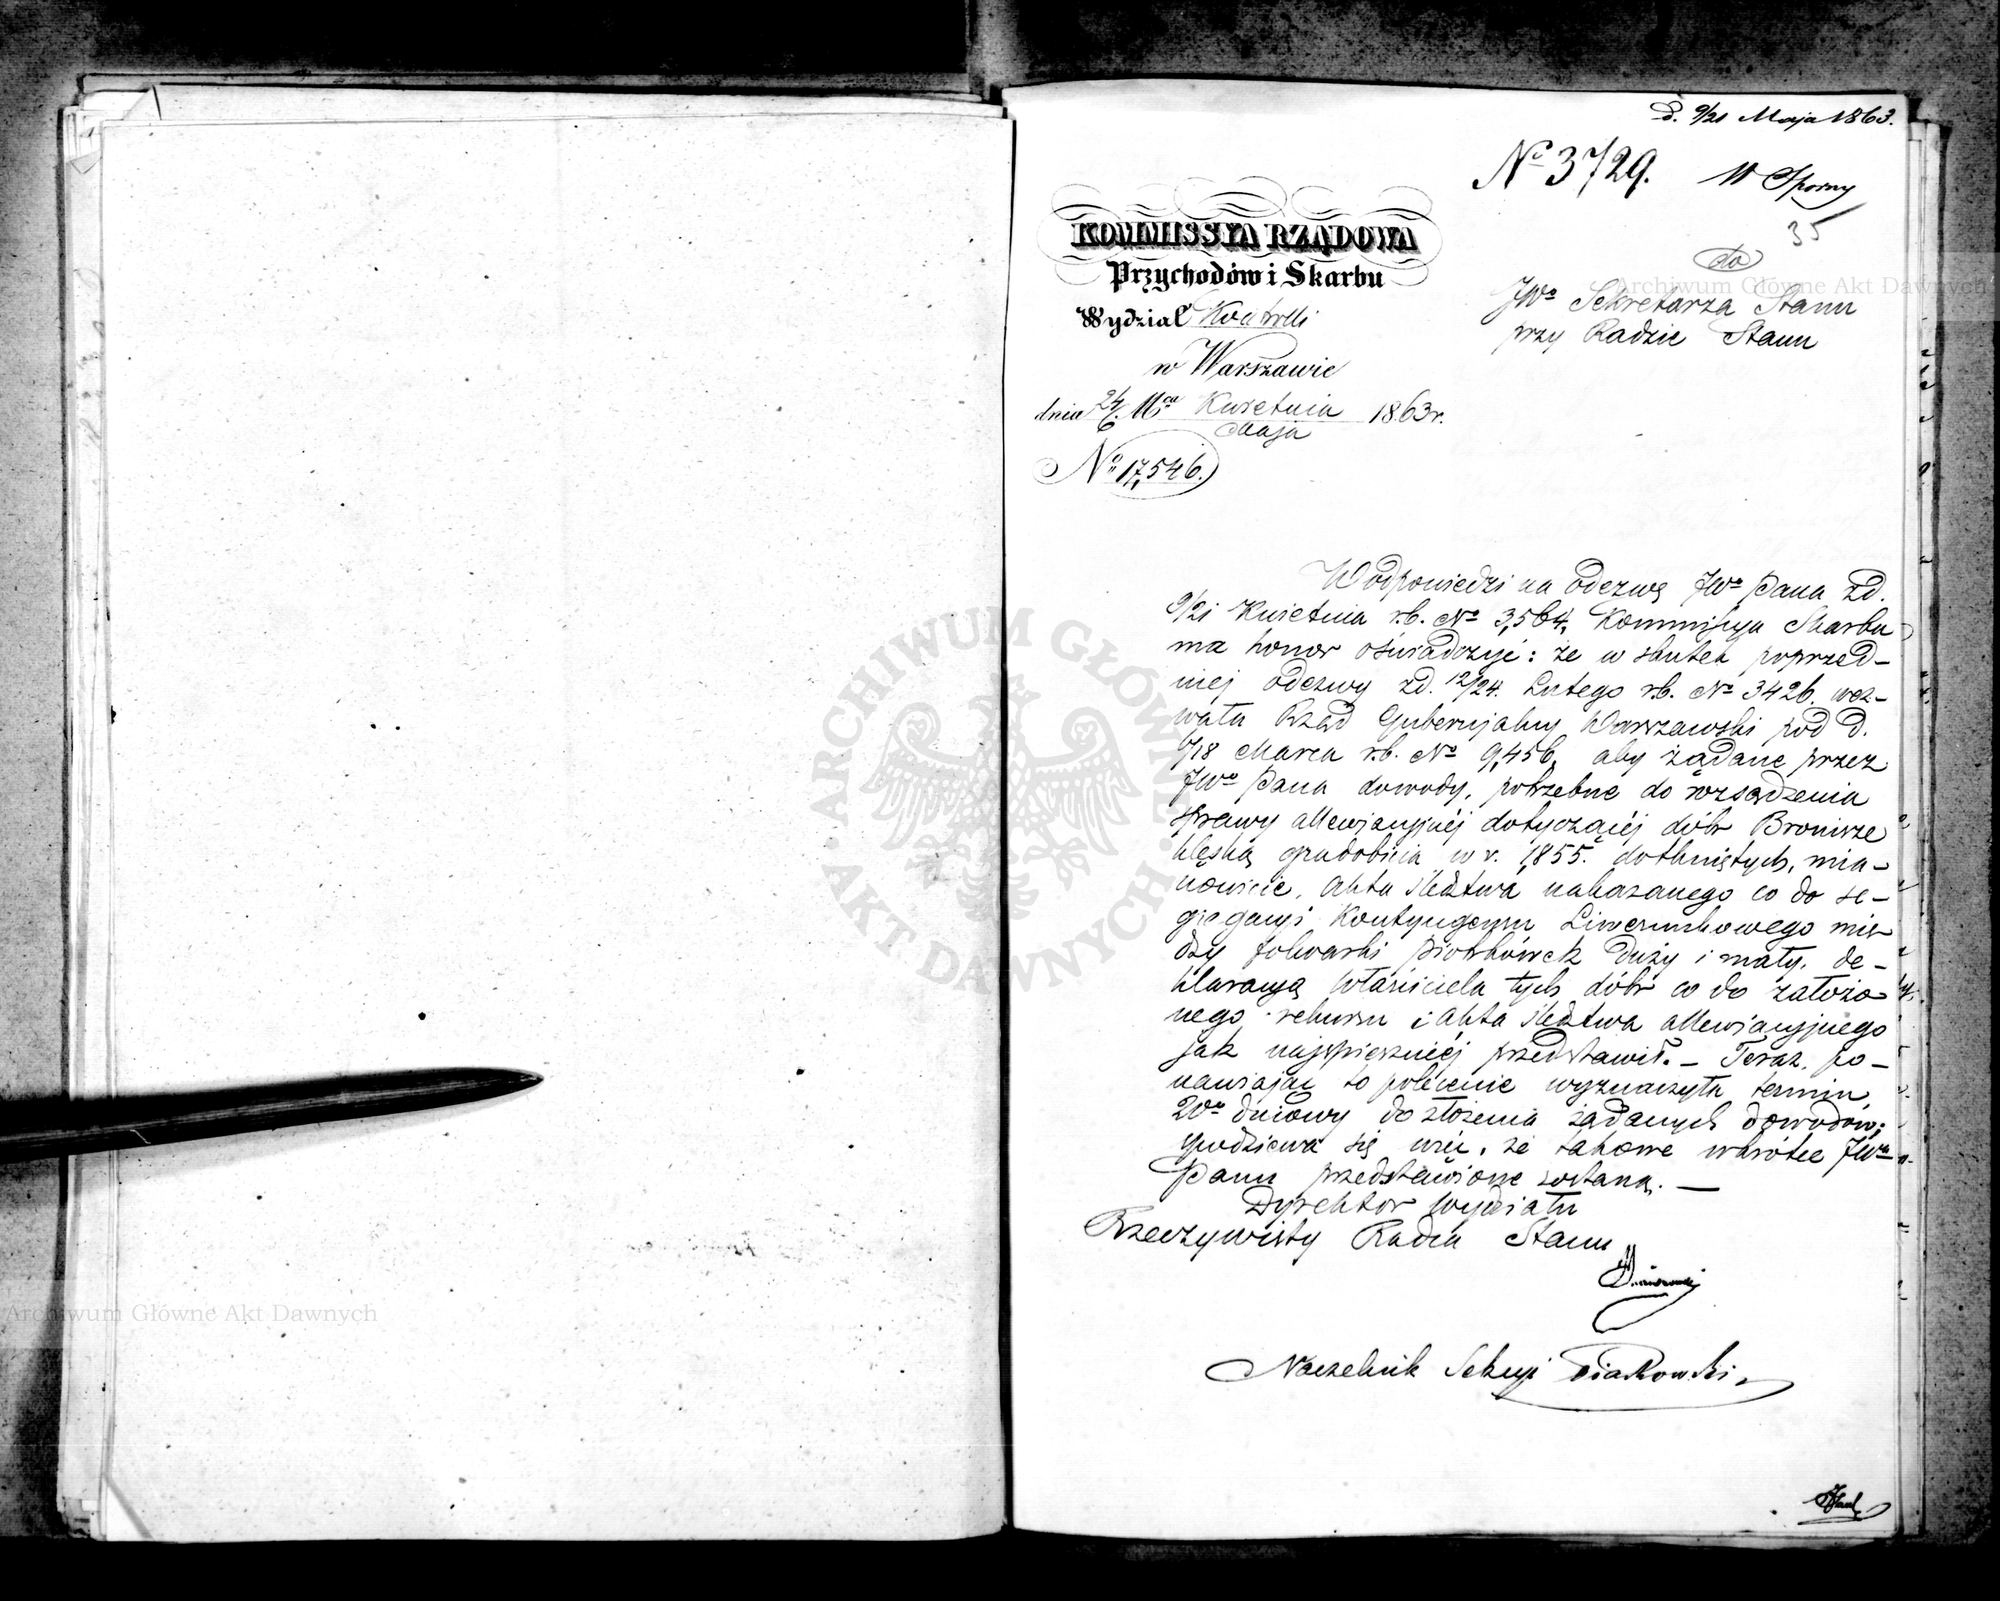 d. 9/21 Maja 1863.
No 3729. W Sporny
35
KOMMISSYA RZĄDOWA
Przychodów i Skarbu
Wydział Kontrolli
w Warszawie
dnia 24/6 Mca Kwietnia/Maja 1863 r.
No 17,546.
do
JWo Sekretarza Stanu
przy Radzie Stanu
W odpowiedzi na odezwę JWo Pana z d.
9/21 Kwietnia r.b. No 3,564, Kommissya Skarbu
ma honor oświadczyć: że w skutek poprzed-
niej odezwy z d. 12/24 Lutego r.b. No 3426. wez-
wała Rząd Gubernjalny Warszawski pod d.
6/18 Marca r.b. No 9,456, aby żądane przez
JWo Pana dowody, potrzebne do rozsądzenia
sprawy allewjacyjnéj dotyczącéj dóbr Bronisze
klęską gradobicia w r. 1855. dotkniętych, mia-
nowicie, akta śledztwa nakazanego co do se-
gregacyi Kontyngensu Liwerunkowego mię-
dzy folwarki Piotrkówek Duży i mały, de-
klaracyą właściciela tych dóbr co do założo-
nego rekursu i akta śledztwa allewjacyjnego
jak najspieszniéj przedstawił. — Teraz, po-
nawiając to polecenie wyznaczyła termin
20o dniowy do złożenia żądanych dowodów;
spodziewa się więc, że takowe wkrótce JWu
Panu przedstawione zostaną. —
Dyrektor Wydziału
Rzeczywisty Radca Stanu
Naczelnik Sekcyi Piaskowski
Archiwum Główne Akt Dawnych
Archiwum Główne Akt Dawnych
ARCHIWUM GŁÓWNE AKT DAWNYCH